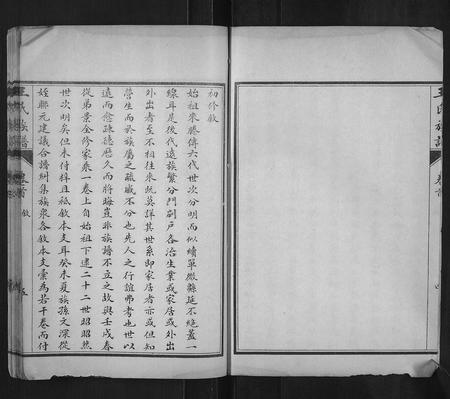 初修敘
始祖來滕傳六代世次分明而似續單微緜延不絕蓋一
線耳是後代遠族繁分門劃戶各治生業或家居或外出
外出者至不相往來既莫詳其世系即家居者亦或但知
營生而於族屬之疏戚不分也先人之行誼弗考也世以
遠而愈疎德歷久而將晦豈非族譜不立之故與壬戌春
從弟景金修家乘一卷上自始祖下逮二十二世昭昭然
世次明矣但未付梓且祗敘本支耳癸未夏族孫文深從
姪聯元建議合譜糾集族衆各敘本支彙為若干卷而付
王氏族譜
卷首
敘
五
王氏族譜
卷首
四